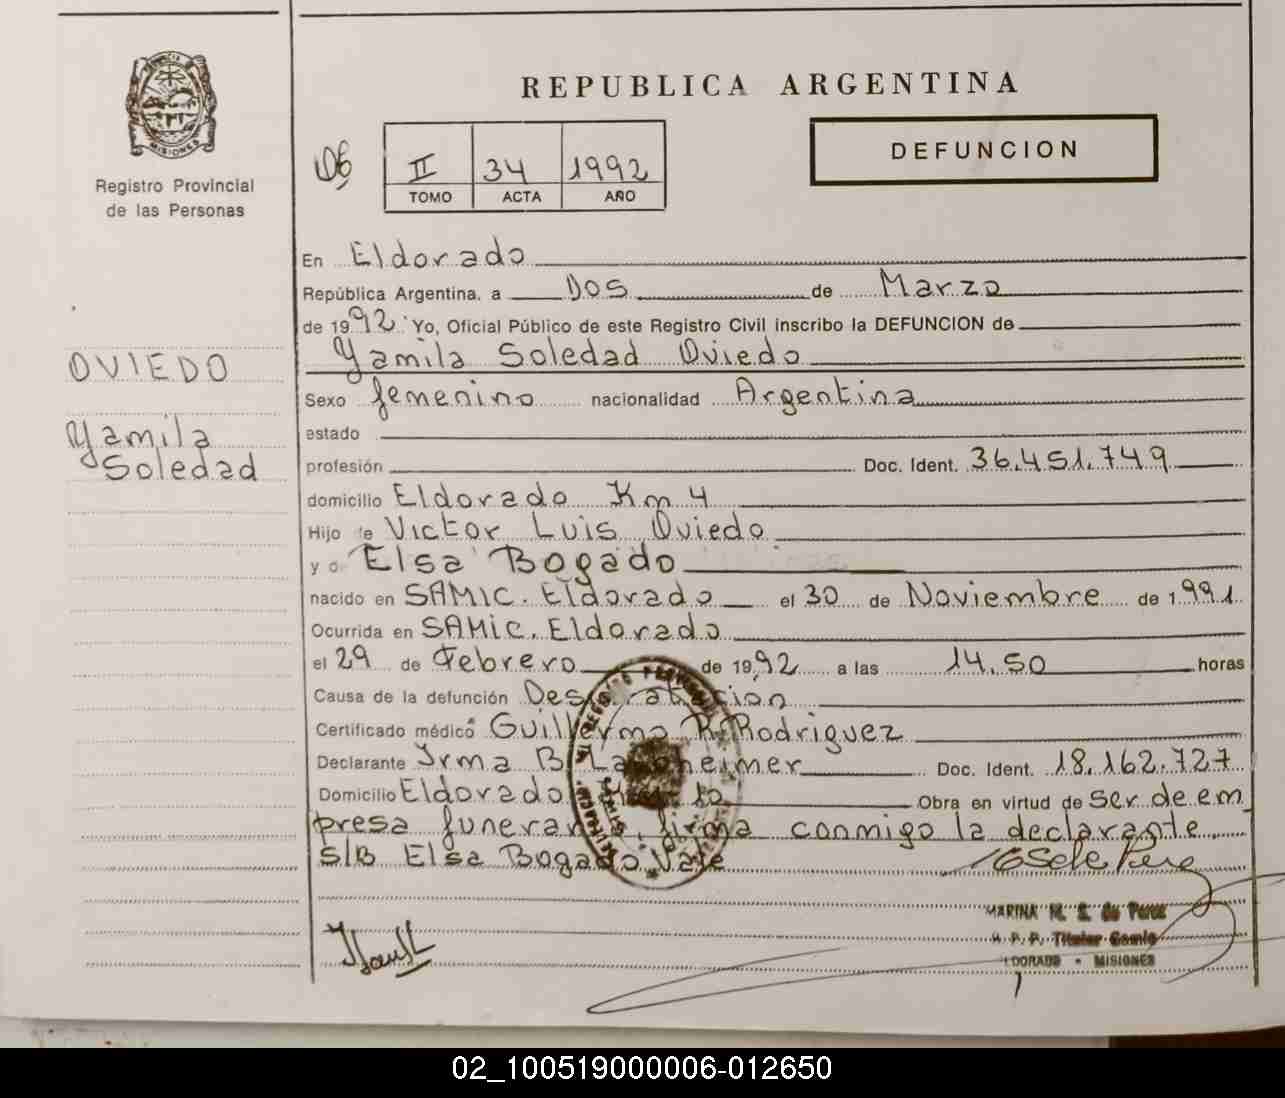 REPUBLICA ARGENTINA
PROVINCIA DE
MISIONES
Registro Provincial
de las Personas
II 34 1992
TOMO ACTA AÑO
DEFUNCION
OVIEDO
Yamila
Soledad
En Eldorado
República Argentina, a Dos de Marzo
de 1992 Yo, Oficial Público de este Registro Civil inscribo la DEFUNCION de
Yamila Soledad Oviedo
Sexo femenino nacionalidad Argentina
estado
profesión Doc. Ident. 36.451.749
domicilio Eldorado Km 4
Hijo de Victor Luis Oviedo
y de Elsa Bogado
nacido en SAMIC. Eldorado el 30 de Noviembre de 1.991
Ocurrida en SAMIC. Eldorado
el 29 de Febrero de 1992 a las 14.50 horas
Causa de la defunción
Certificado médico Guillermo R. Rodriguez
Declarante Irma B. Doc. Ident. 18.162.727
Domicilio Eldorado 10 Obra en virtud de ser de em
presa funeraria, firma conmigo la declarante
S/B Elsa Bogado Vale
MARINA M. S. de Perez
R. P. P. Titular
ELDORADO - MISIONES
02_100519000006-012650